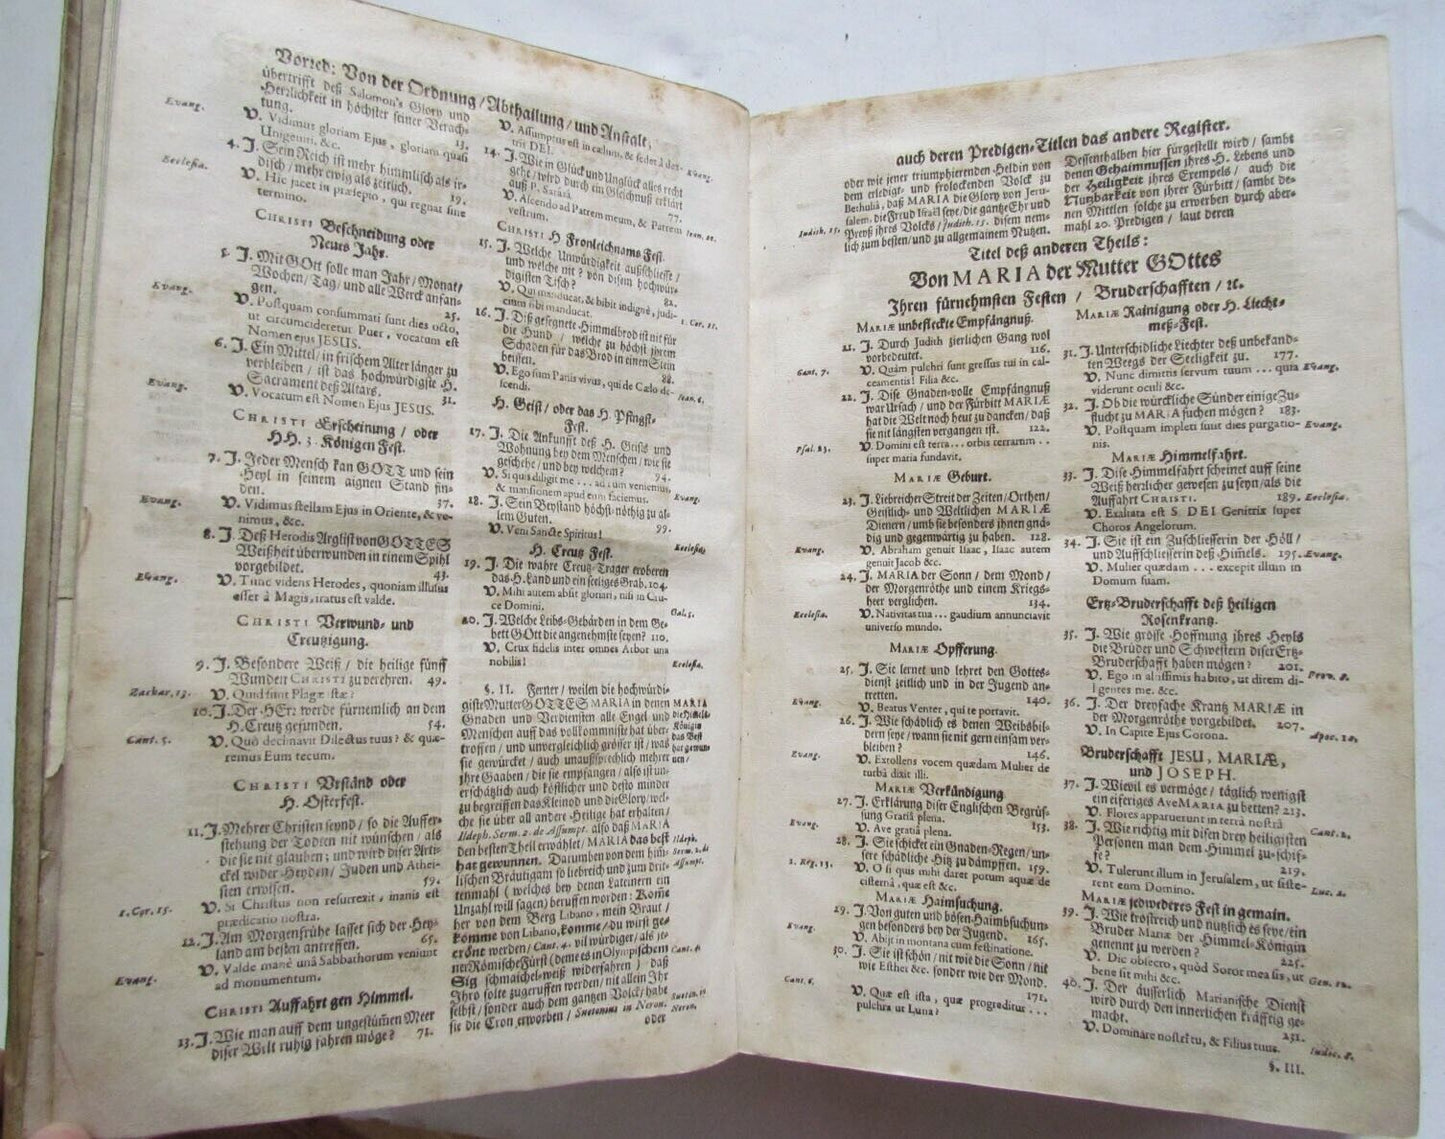 Vorred: Von der Ordnung / Abtheilung / und Anstalt,
übertrifft deß Salomon's Glory und
Herrlichkeit in höchster seiner Verach-
tung. 13.
Evang.
V. Vidimus gloriam Ejus, gloriam quasi
Unigeniti, &c.
4. J. Sein Reich ist mehr himmlisch als ir-
disch / mehr ewig als zeitlich. 19.
Ecclesia.
V. Hic jacet in præsepio, qui regnat sine
termino.
CHRISTI Beschneidung oder
Neues Jahr.
5. J. Mit GOtt solle man Jahr / Monat /
Wochen / Tag / und alle Werck anfan-
gen. 25.
Evang.
V. Postquam consummati sunt dies octo,
ut circumcideretur Puer, vocatum est
Nomen ejus JESUS.
6. J. Ein Mittel / in frischem Alter länger zu
verbleiben / ist das hochwürdigste H.
Sacrament deß Altars. 31.
Evang.
V. Vocatum est Nomen Ejus JESUS.
CHRISTI Erscheinung / oder
HH. 3. Königen Fest.
7. J. Jeder Mensch kan GOTT und sein
Heyl in seinem aignen Stand fin-
den. 37.
Evang.
V. Vidimus stellam Ejus in Oriente, & ve-
nimus, &c.
8. J. Deß Herodis Arglist von GOTTES
Weißheit überwunden in einem Spihl
vorgebildet. 43.
Evang.
V. Tunc videns Herodes, quoniam illusus
esset à Magis, iratus est valde.
CHRISTI Verwund- und
Creutzigung.
9. J. Besondere Weiß / die heilige fünff
Wunden CHRISTI zu verehren. 49.
Zachar. 13.
V. Quid sunt Plagæ istæ?
10. J. Der HErr werde fürnemlich an dem
H. Creutz gefunden. 54.
Cant. 5.
V. Quò declinavit Dilectus tuus? & quæ-
remus Eum tecum.
CHRISTI Urständ oder
H. Osterfest.
11. J. Mehrer Christen seynd / so die Auffer-
stehung der Todten nit wünschen / als
die sie nit glauben; und wird diser Arti-
ckel wider Heyden / Juden und Athei-
sten erwisen. 59.
1. Cor. 15.
V. Si Christus non resurrexit, inanis est
prædicatio nostra.
12. J. Am Morgenfrühe lasset sich der Hey-
land am besten antreffen. 65.
Evang.
V. Valde manè unâ Sabbathorum veniunt
ad monumentum.
CHRISTI Auffahrt gen Himmel.
13. J. Wie man auff dem ungestümen Meer
diser Welt ruhig fahren möge? 71.
V. Assumptus est in cælum, & sedet à dex-
tris DEI. Evang.
14. J. Wie in Glück und Unglück alles recht
gehe / wird durch ein Gleichnuß erklärt
auß P. 77.
V. Ascendo ad Patrem meum, & Patrem
vestrum. Joan. 20.
CHRISTI H Fronleichnams Fest.
15. J. Welche Unwürdigkeit außschliesse /
und welche nit? von disem hochwür-
digisten Tisch? 82.
V. Qui manducat, & bibit indignè, judi-
cium sibi manducat. 1. Cor. 11.
16. J. Diß gesegnete Himmelbrod ist nit für
die Hund / welche zu höchst ihrem
Schaden für das Brod in einen Stein
beissen. 88.
V. Ego sum Panis vivus, qui de Cælo de-
scendi. Joan. 6.
H. Geist / oder das H. Pfingst-
Fest.
17. J. Die Ankunfft deß H. Geists und
Wohnung bey dem Menschen / wie sie
geschehe / und bey welchem? 94.
V. Si quis diligit me ... ad eum veniemus,
& mansionem apud eum faciemus. Evang.
18. J. Sein Beystand höchst-nöthig zu al-
lem Guten. 99.
V. Veni Sancte Spiritus! Ecclesia
H. Creutz Fest.
19. J. Die wahre Creutz-Trager eroberen
das H. Land und ein seeliges Grab. 104.
V. Mihi autem absit gloriari, nisi in Cru-
ce Domini. Gal. 5.
20. J. Welche Leibs-Gebärden in dem Ge-
bett GOtt die angenehmste seyen? 110.
V. Crux fidelis inter omnes Arbor una
nobilis! Ecclesia.
§. II. Ferner / weilen die hochwürdi-
giste Mutter GOTTES MARIA in denen
Gnaden und Verdiensten alle Engel und
Menschen auff das vollkommniste hat über-
troffen / und unvergleichlich grösser ist / was
sie gewürcket / auch unaussprechlich mehrer
jhre Gaaben / die sie empfangen / also ist un-
erschätzlich auch köstlicher und desto minder
zu begreiffen das Kleinod und die Glory / wel-
che sie über all andere Heilige hat erhalten /
Ildeph. Serm. 2. de Assumpt. also daß MARIA
den besten Theil erwählet / MARIA das best
hat gewunnen. Darumben von dem him-
lischen Bräutigam so liebreich und zum drit-
tenmahl (welches bey denen Lateinern ein
Unzahl will sagen) beruffen worden: Komme
her von dem Berg Libano, mein Braut /
komme von Libano, komme / du wirst ge-
crönt werden / Cant. 4. vil würdiger / als je-
ner Römische Fürst (deme es in Olympischem
Sig schmaichel-weiß widerfahren) daß
Jhro solte zugeruffen werden / nit allein Ihr
selbst / sonder auch dem gantzen Volck habe
sie die Cron erworben / Suetonius in Neron.
oder
MARIA
die Himels-
Königin
das Best
hat gewun-
nen /
Ildeph.
Serm. 2. de
Assumpt.
Cant. 4.
Sueton. in
Neron.
auch deren Predigen-Titlen das andere Register.
oder wie jener triumphierenden Heldin von
dem erledigt- und frolockenden Volck zu
Bethuliâ, daß MARIA die Glory von Jeru-
salem, die Freud Israël seye / die gantze Ehr und
Preyß jhres Volcks / Judith. 15. disem nem-
lich zum besten / und zu allgemainem Nutzen.
Judith. 15.
Dessenthalben hier fürgestellt wird / sambt
denen Gehaimnussen jhres H. Lebens und
der Heiligkeit jhres Exempels / auch die
Nutzbarkeit von jhrer Fürbitt / sambt de-
nen Mittlen solche zu erwerben durch aber-
mahl 20. Predigen / laut deren
Titel deß anderen Theils:
Von MARIA der Mutter GOttes
Jhren fürnehmsten Festen / Bruderschafften / ꝛc.
MARIÆ unbefleckte Empfängnuß.
21. J. Durch Judith zierlichen Gang wol
vorbedeutet. 116.
Cant. 7.
V. Quàm pulchri sunt gressus tui in cal-
ceamentis! Filia &c.
22. J. Dise Gnaden-volle Empfängnuß
war Ursach / und der Fürbitt MARIÆ
hat die Welt noch heut zu dancken / daß
sie nit längsten vergangen ist. 122.
Psal. 23.
V. Domini est terra ... orbis terrarum ..
super maria fundavit.
MARIÆ Geburt.
23. J. Liebreicher Streit der Zeiten / Orthen /
Geistlich- und Weltlichen MARIÆ
Dienern / umb sie besonders ihnen gnä-
dig und gegenwärtig zu haben. 128.
Evang.
V. Abraham genuit Isaac, Isaac autem
genuit Jacob &c.
24. J. MARIA der Sonn / dem Mond /
der Morgenröthe und einem Kriegs-
heer verglichen. 134.
Ecclesia.
V. Nativitas tua ... gaudium annunciavit
universo mundo.
MARIÆ Opfferung.
25. J. Sie lernet und lehret den Gottes-
dienst zeitlich und in der Jugend an-
tretten. 140.
Evang.
V. Beatus Venter, qui te portavit.
26. J. Wie schädlich es denen Weibsbil-
dern seye / wann sie nit gern einsam ver-
bleiben? 146.
Evang.
V. Extollens vocem quædam Mulier de
turbâ dixit illi.
MARIÆ Verkündigung
27. J. Erklärung diser Englischen Begrüs-
sung Gratiâ plena. 153.
Evang.
V. Ave gratiâ plena.
28. J. Sie schicket ein Gnaden-Regen / un-
sere schädliche Hitz zu dämpffen. 159.
2. Reg. 23.
V. O si quis mihi daret potum aquæ de
cisternâ, quæ est &c.
MARIÆ Haimsuchung.
29. J. Von guten und bösen Haimbsuchun-
gen besonders bey der Jugend. 165.
Evang.
V. Abijt in montana cum festinatione.
30. J. Sie ist schön / nit wie die Sonn / nit
wie Esther &c. sonder wie der Mond.
171.
Cant. 6.
V. Quæ est ista, quæ progreditur ...
pulchra ut Luna?
MARIÆ Rainigung oder H. Liecht-
meß-Fest.
31. J. Unterschidliche Liechter deß unbekand-
ten Weegs der Seeligkeit zu. 177.
V. Nunc dimittis servum tuum ... quia Evang.
viderunt oculi &c.
32. J. Ob die würckliche Sünder einige Zu-
flucht zu MARIA suchen mögen? 183.
V. Postquam impleti sunt dies purgatio- Evang.
nis.
MARIÆ Himmelfahrt.
33. J. Dise Himmelfahrt scheinet auff seine
Weiß herrlicher gewesen zu seyn / als die
Auffahrt CHRISTI. 189. Ecclesia.
V. Exaltata est S. DEI Genitrix super
Choros Angelorum.
34. J. Sie ist ein Zuschliesserin der Höll /
und Auffschliesserin deß Himels. 195. Evang.
V. Mulier quædam ... excepit illum in
Domum suam.
Ertz-Bruderschafft deß heiligen
Rosenkrantz.
35. J. Wie grosse Hoffnung jhres Heyls
die Brüder und Schwestern diser Ertz-
Bruderschafft haben mögen? 201.
V. Ego in altissimis habito, ut ditem di- Prov. 8.
ligentes me. &c.
36. J. Der dreyfache Krantz MARIÆ in
der Morgenröthe vorgebildet. 207.
V. In Capite Ejus Corona. Apoc. 12.
Bruderschafft JESU, MARIÆ,
und JOSEPH.
37. J. Wievil es vermöge / täglich wenigst
ein eiferiges Ave MARIA zu betten? 213.
V. Flores apparuerunt in terrâ nostrâ Cant. 2.
38. J. Wie richtig mit disen drey heiligisten
Personen man dem Himmel zu-schif-
fe? 219.
V. Tulerunt illum in Jerusalem, ut siste-
rent eum Domino. Luc. 2.
MARIÆ jedwederes Fest in gemain.
39. J. Wie trostreich und nutzlich es seye / ein
Bruder Mariæ der Himmel-Königin
genennt zu werden? 225.
V. Dic obsecro, quòd Soror mea sis, ut Gen. 12.
bene sit mihi &c.
40. J. Der äusserlich Marianische Dienst
wird durch den innerlichen kräfftig ge-
macht. 231.
V. Dominare nostri tu, & Filius tuus. Judic. 8.
§. III.